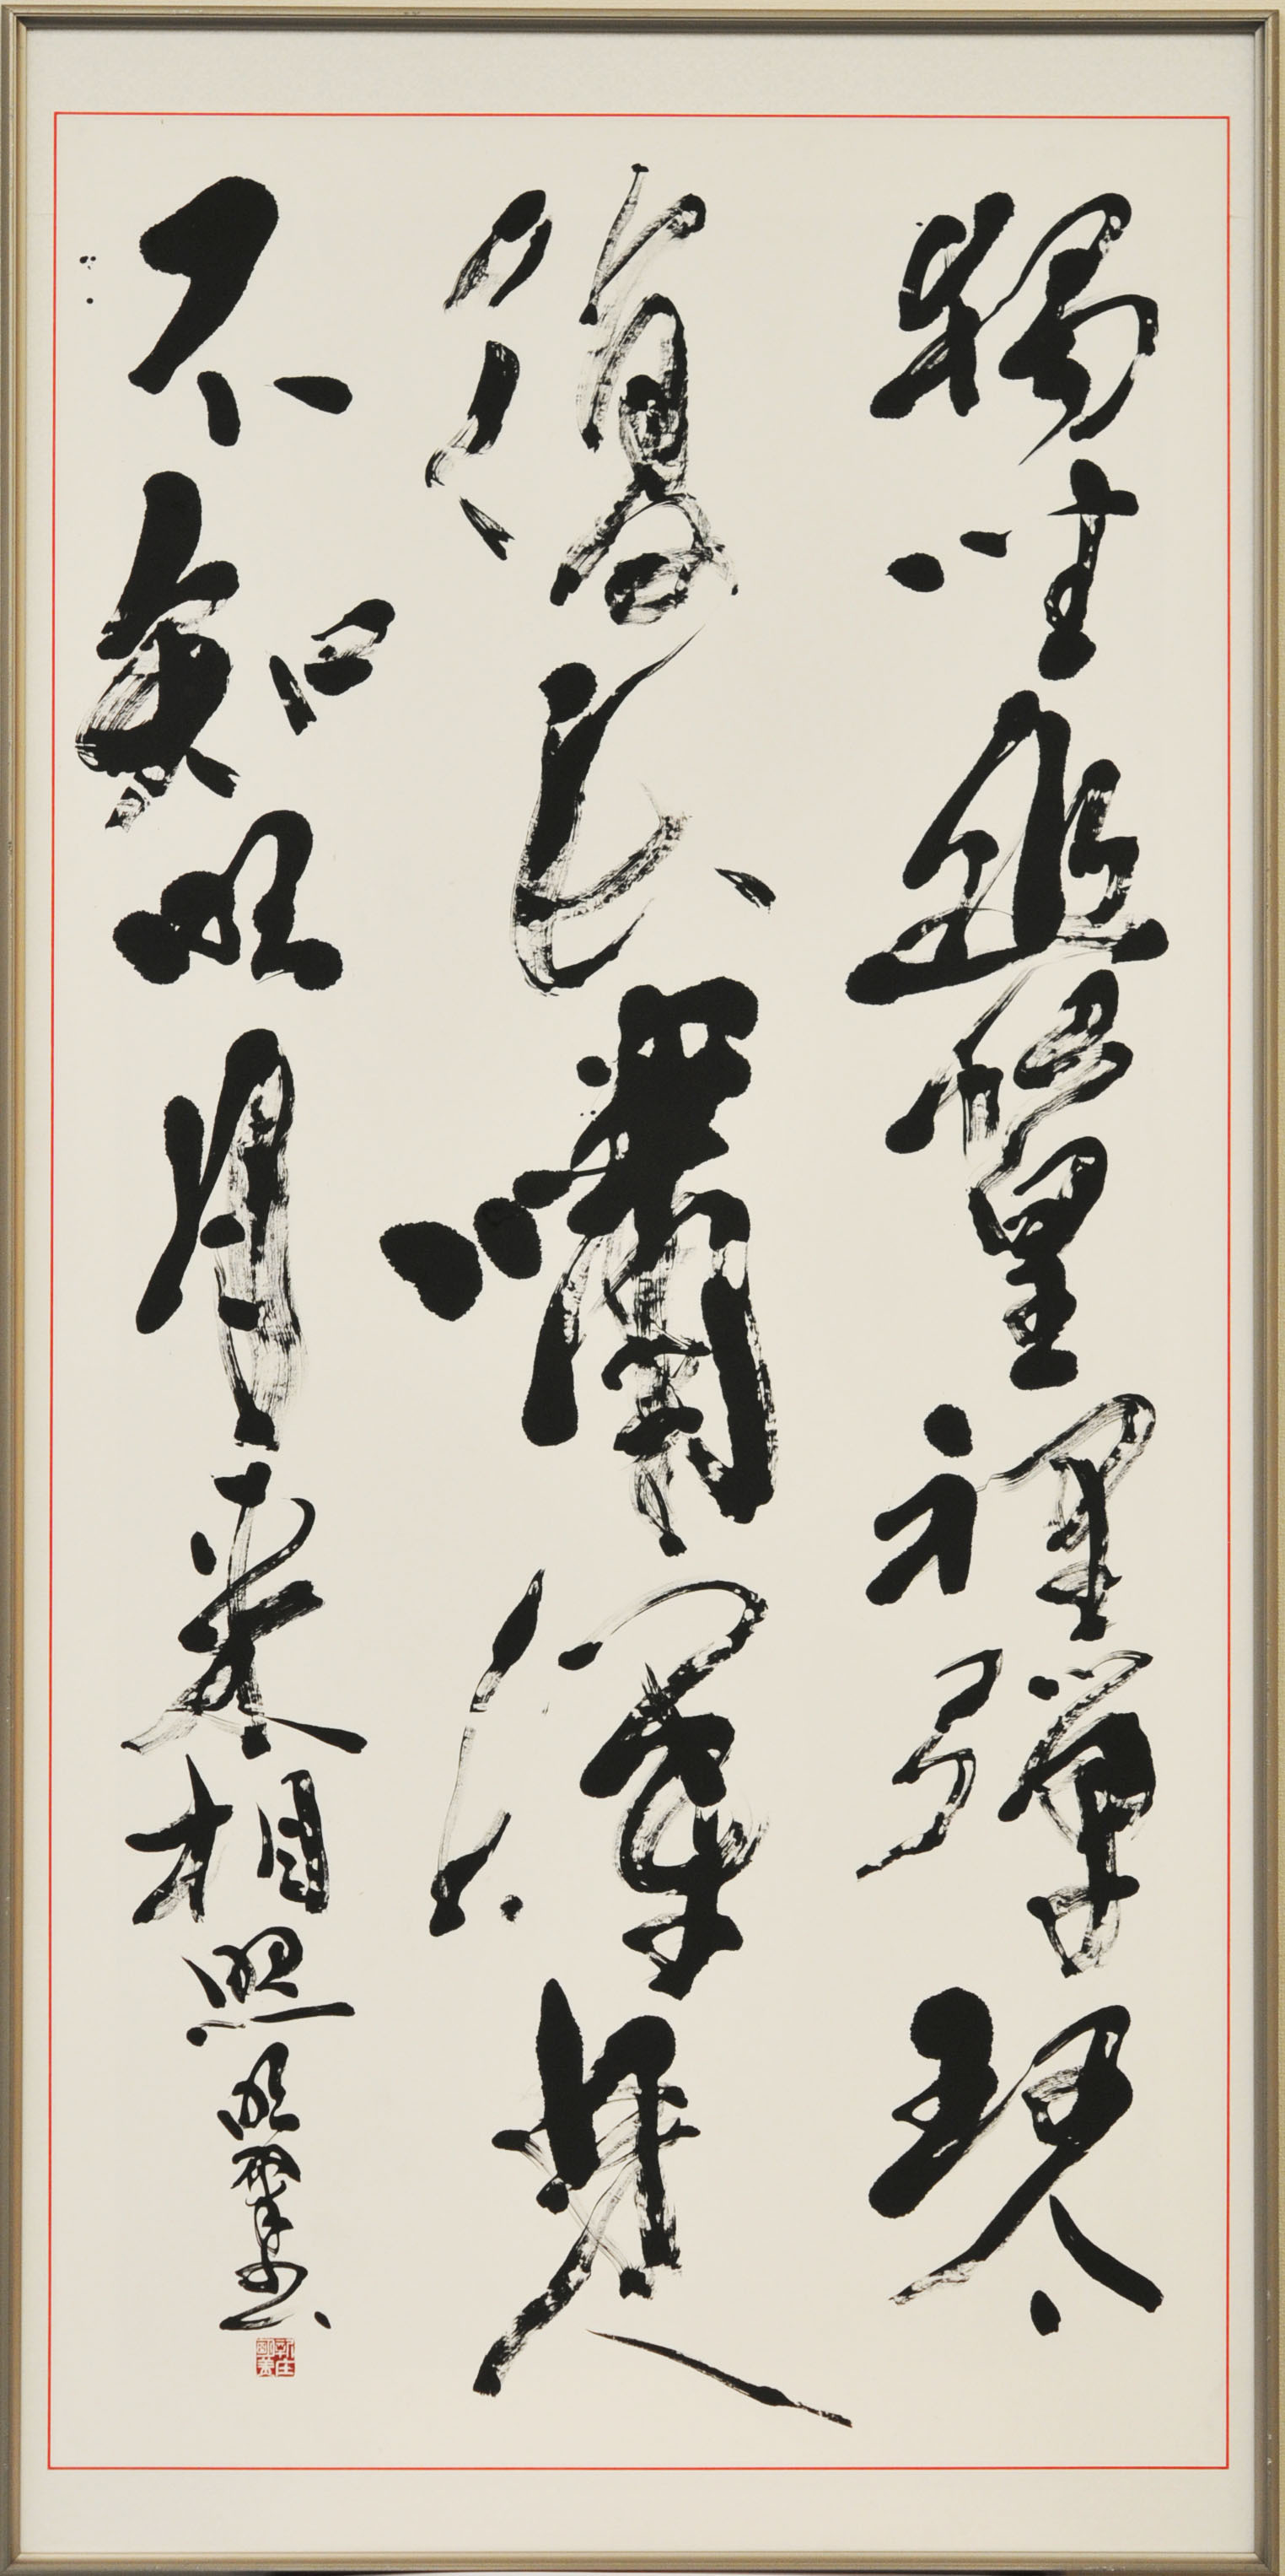 獨坐幽篁裡彈琴
復長嘯深林人
不知明月来相照